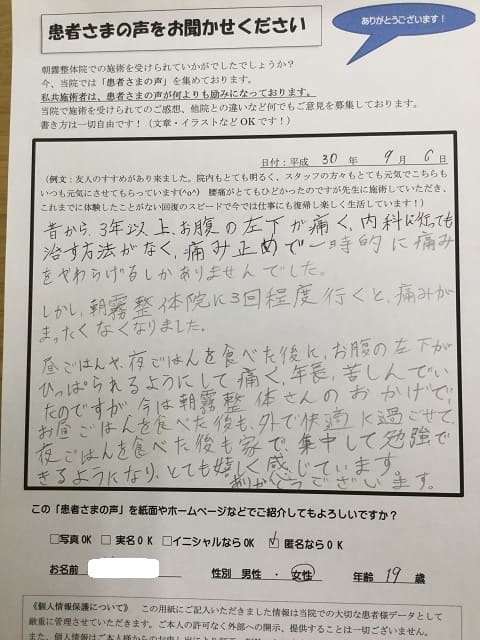 患者さまの声をお聞かせください
ありがとうございます！
朝霧整体院での施術を受けられていかがでしたでしょうか？
今、当院では「患者さまの声」を集めております。
私共施術者は、患者さまの声が何よりも励みになっております。
当院で施術を受けられてのご感想、他院との違いなど何でもご意見を募集しております。
書き方は一切自由です！（文章・イラストなどOKです！）
日付：平成 30 年 9 月 6 日
（例文：友人のすすめがあり来ました。院内もとても明るく、スタッフの方々もとても元気でこちらも
いつも元気にさせてもらっています(^o^) 腰痛がとてもひどかったのですが先生に施術していただき、
これまでに体験したことがない回復のスピードで今では仕事にも復帰し楽しく生活しています！）
昔から、3年以上、お腹の左下が痛く、内科に行っても
治す方法がなく、痛み止めで一時的に痛み
をやわらげるしかありませんでした。
しかし、朝霧整体院に3回程度行くと、痛みが
まったくなくなりました。
昼ごはんや、夜ごはんを食べた後に、お腹の左下が
ひっぱられるようにして痛く、年長、苦しんでい
たのですが今は朝霧整体さんのおかげで、
お昼ごはんを食べた後も、外で快適に過ごせて、
夜ごはんを食べた後も家で集中して勉強で
きるようになり、とても嬉しく感じています。
ありがとうございます。
この「患者さまの声」を紙面やホームページなどでご紹介してもよろしいですか？
□写真OK □実名OK □イニシャルならOK ☑匿名ならOK
お名前 性別 男性 ・ 女性 年齢 19 歳
《個人情報保護について》 この用紙にご記入いただきました情報は当院での大切な患者様データとして
厳重に管理させていただきます。ご本人の許可なく外部への開示、提供することは一切ございません。